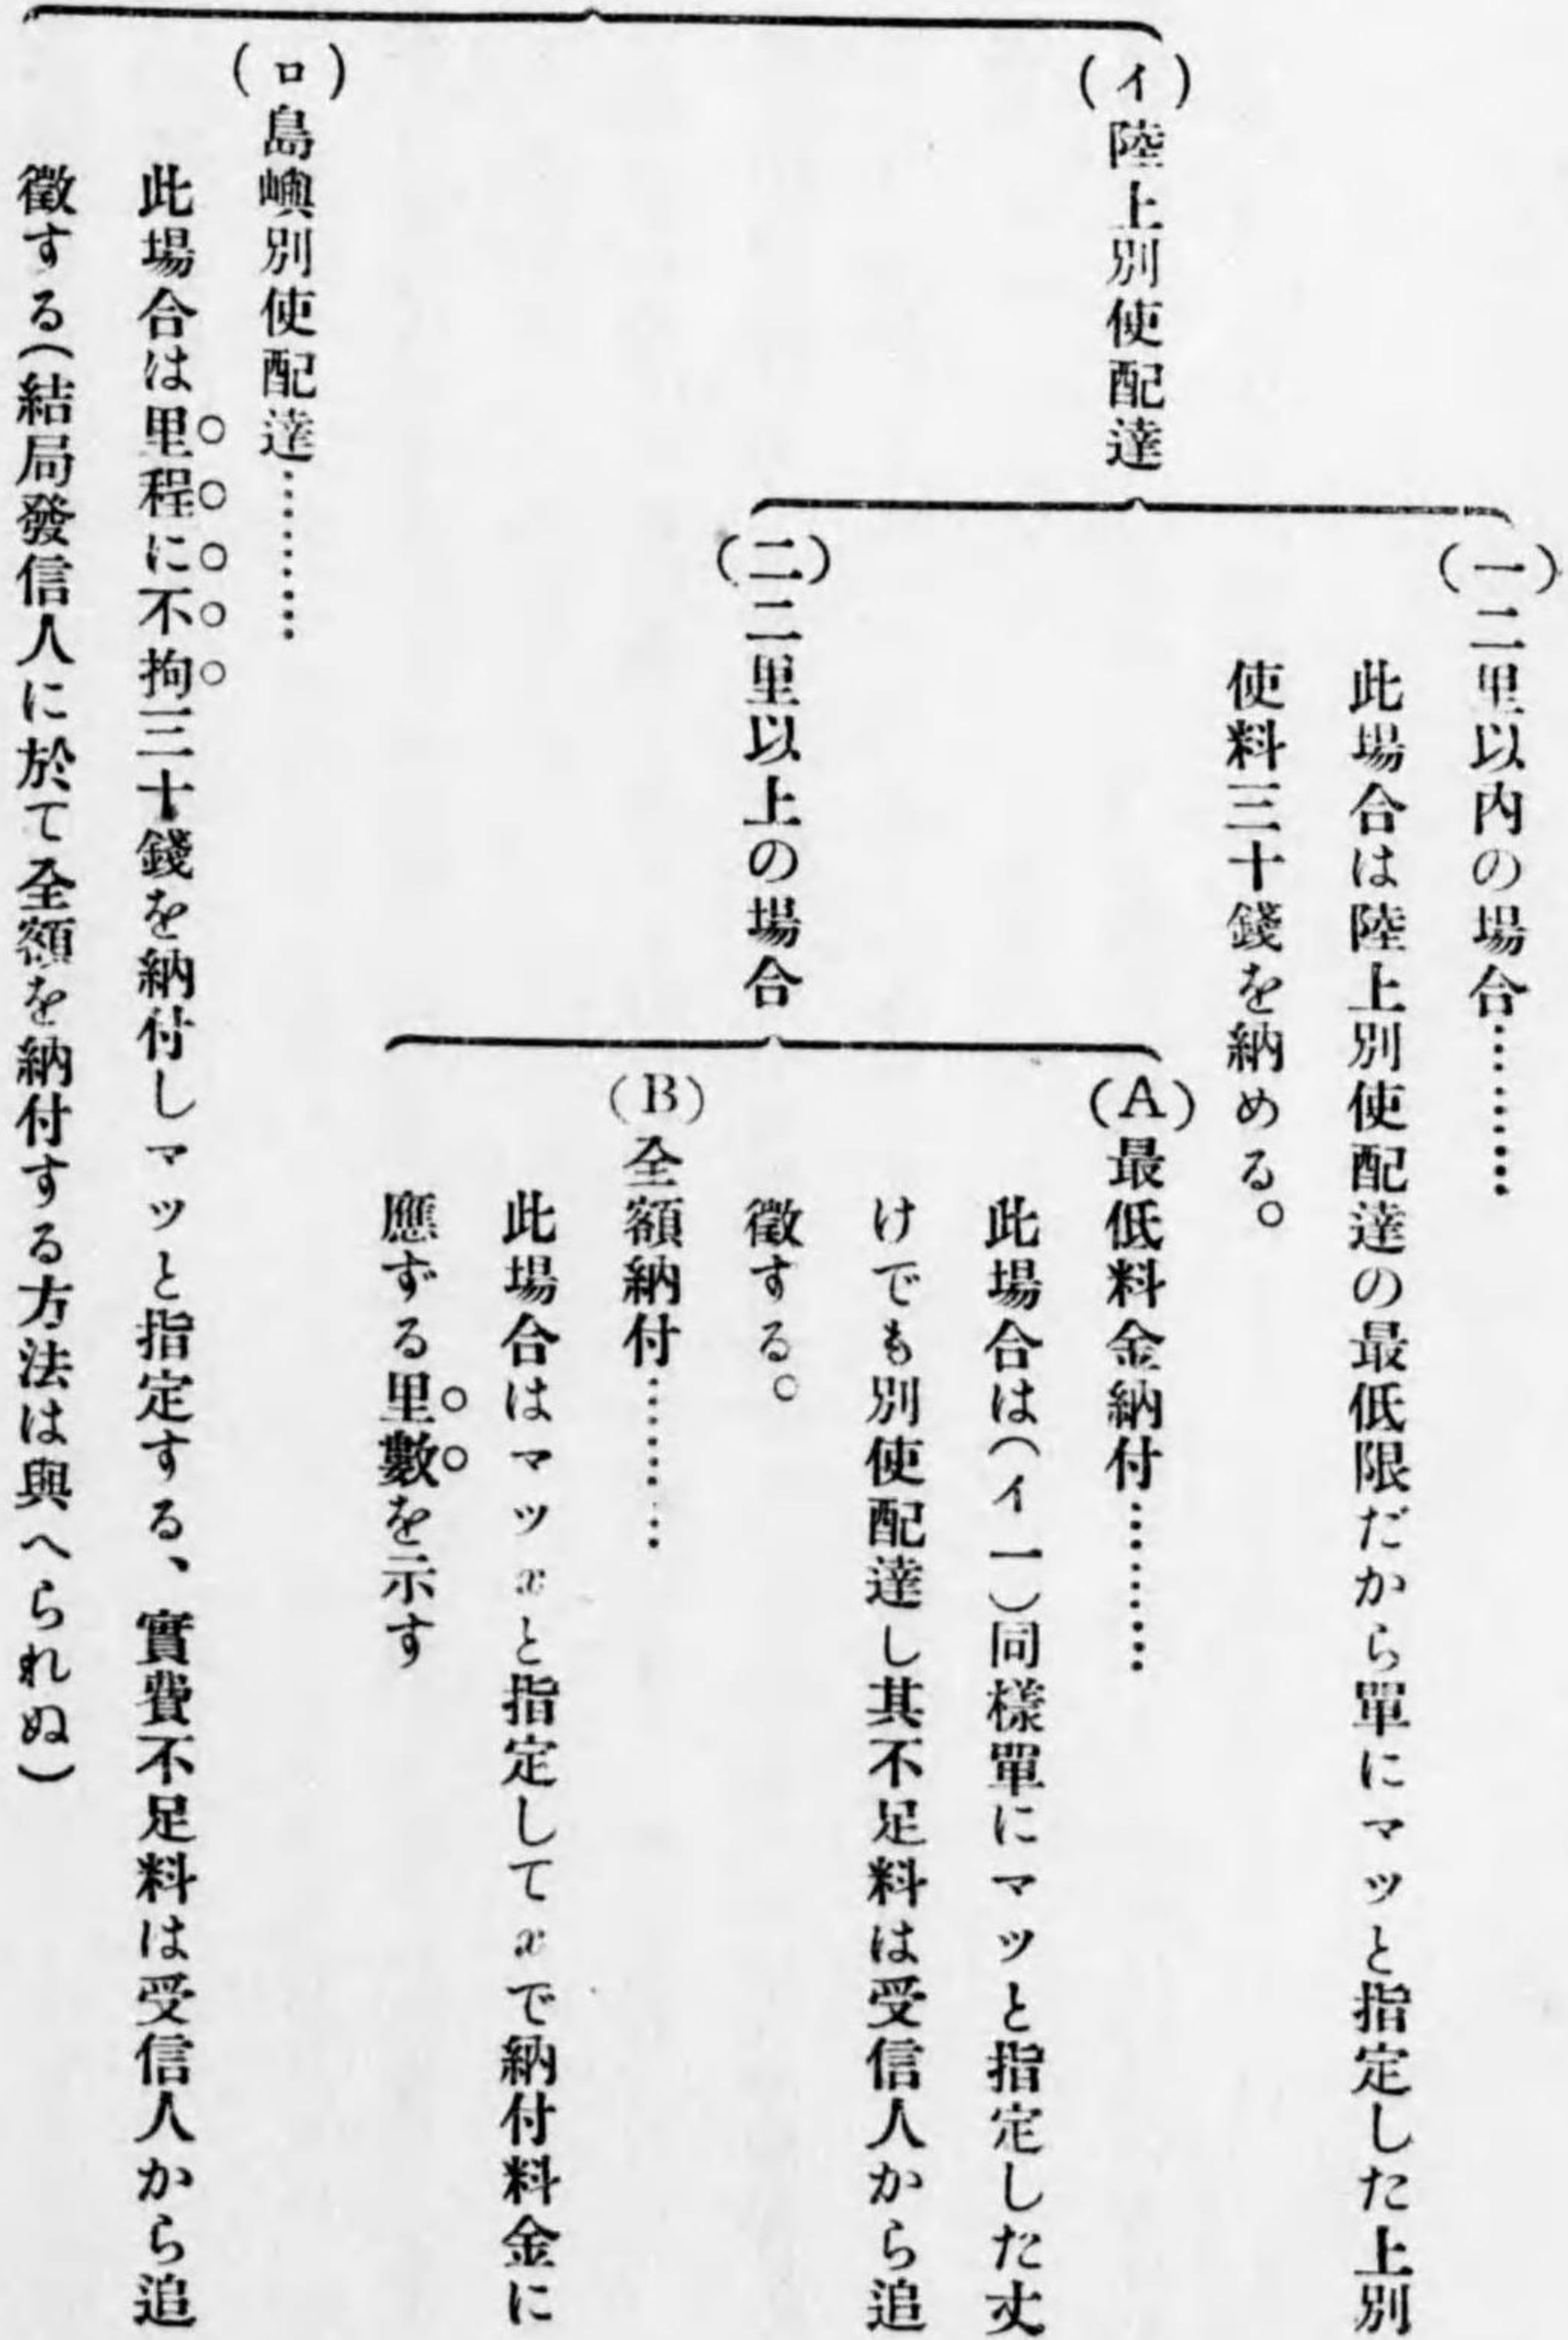 (イ)陸上別使配達
(一)二里以内の場合…………
此場合は陸上別使配達の最低限だから單にマツと指定した上別
使料三十錢を納める。
(二)二里以上の場合
(A)最低料金納付…………
此場合は(イ一)同樣單にマツと指定した丈
けでも別使配達し其不足料は受信人から追
徵する。
(B)全額納付…………
此場合はマツxと指定してxで納付料金に
應ずる里數を示す
(ロ)島嶼別使配達…………
此場合は里程に不拘三十錢を納付しマツと指定する、實費不足料は受信人から追
徵する(結局發信人に於て全額を納付する方法は與へられぬ)